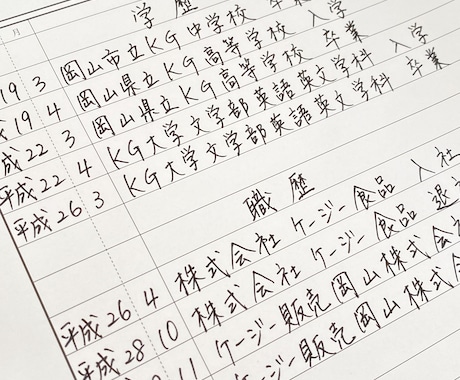 月
学歴
19 3 岡山市立KG中学校
19 4 岡山県立KG高等学校 入学
成22 3 岡山県立KG高等学校 卒業
平成22 4 KG大学文学部英語英文学科 入学
平成26 3 KG大学文学部英語英文学科 卒業
職歴
平成26 4 株式会社 ケージー食品 入社
平成28 10 株式会社 ケージー食品 退
11 ケージー販売岡山株式会
ケージー販売岡山株式会